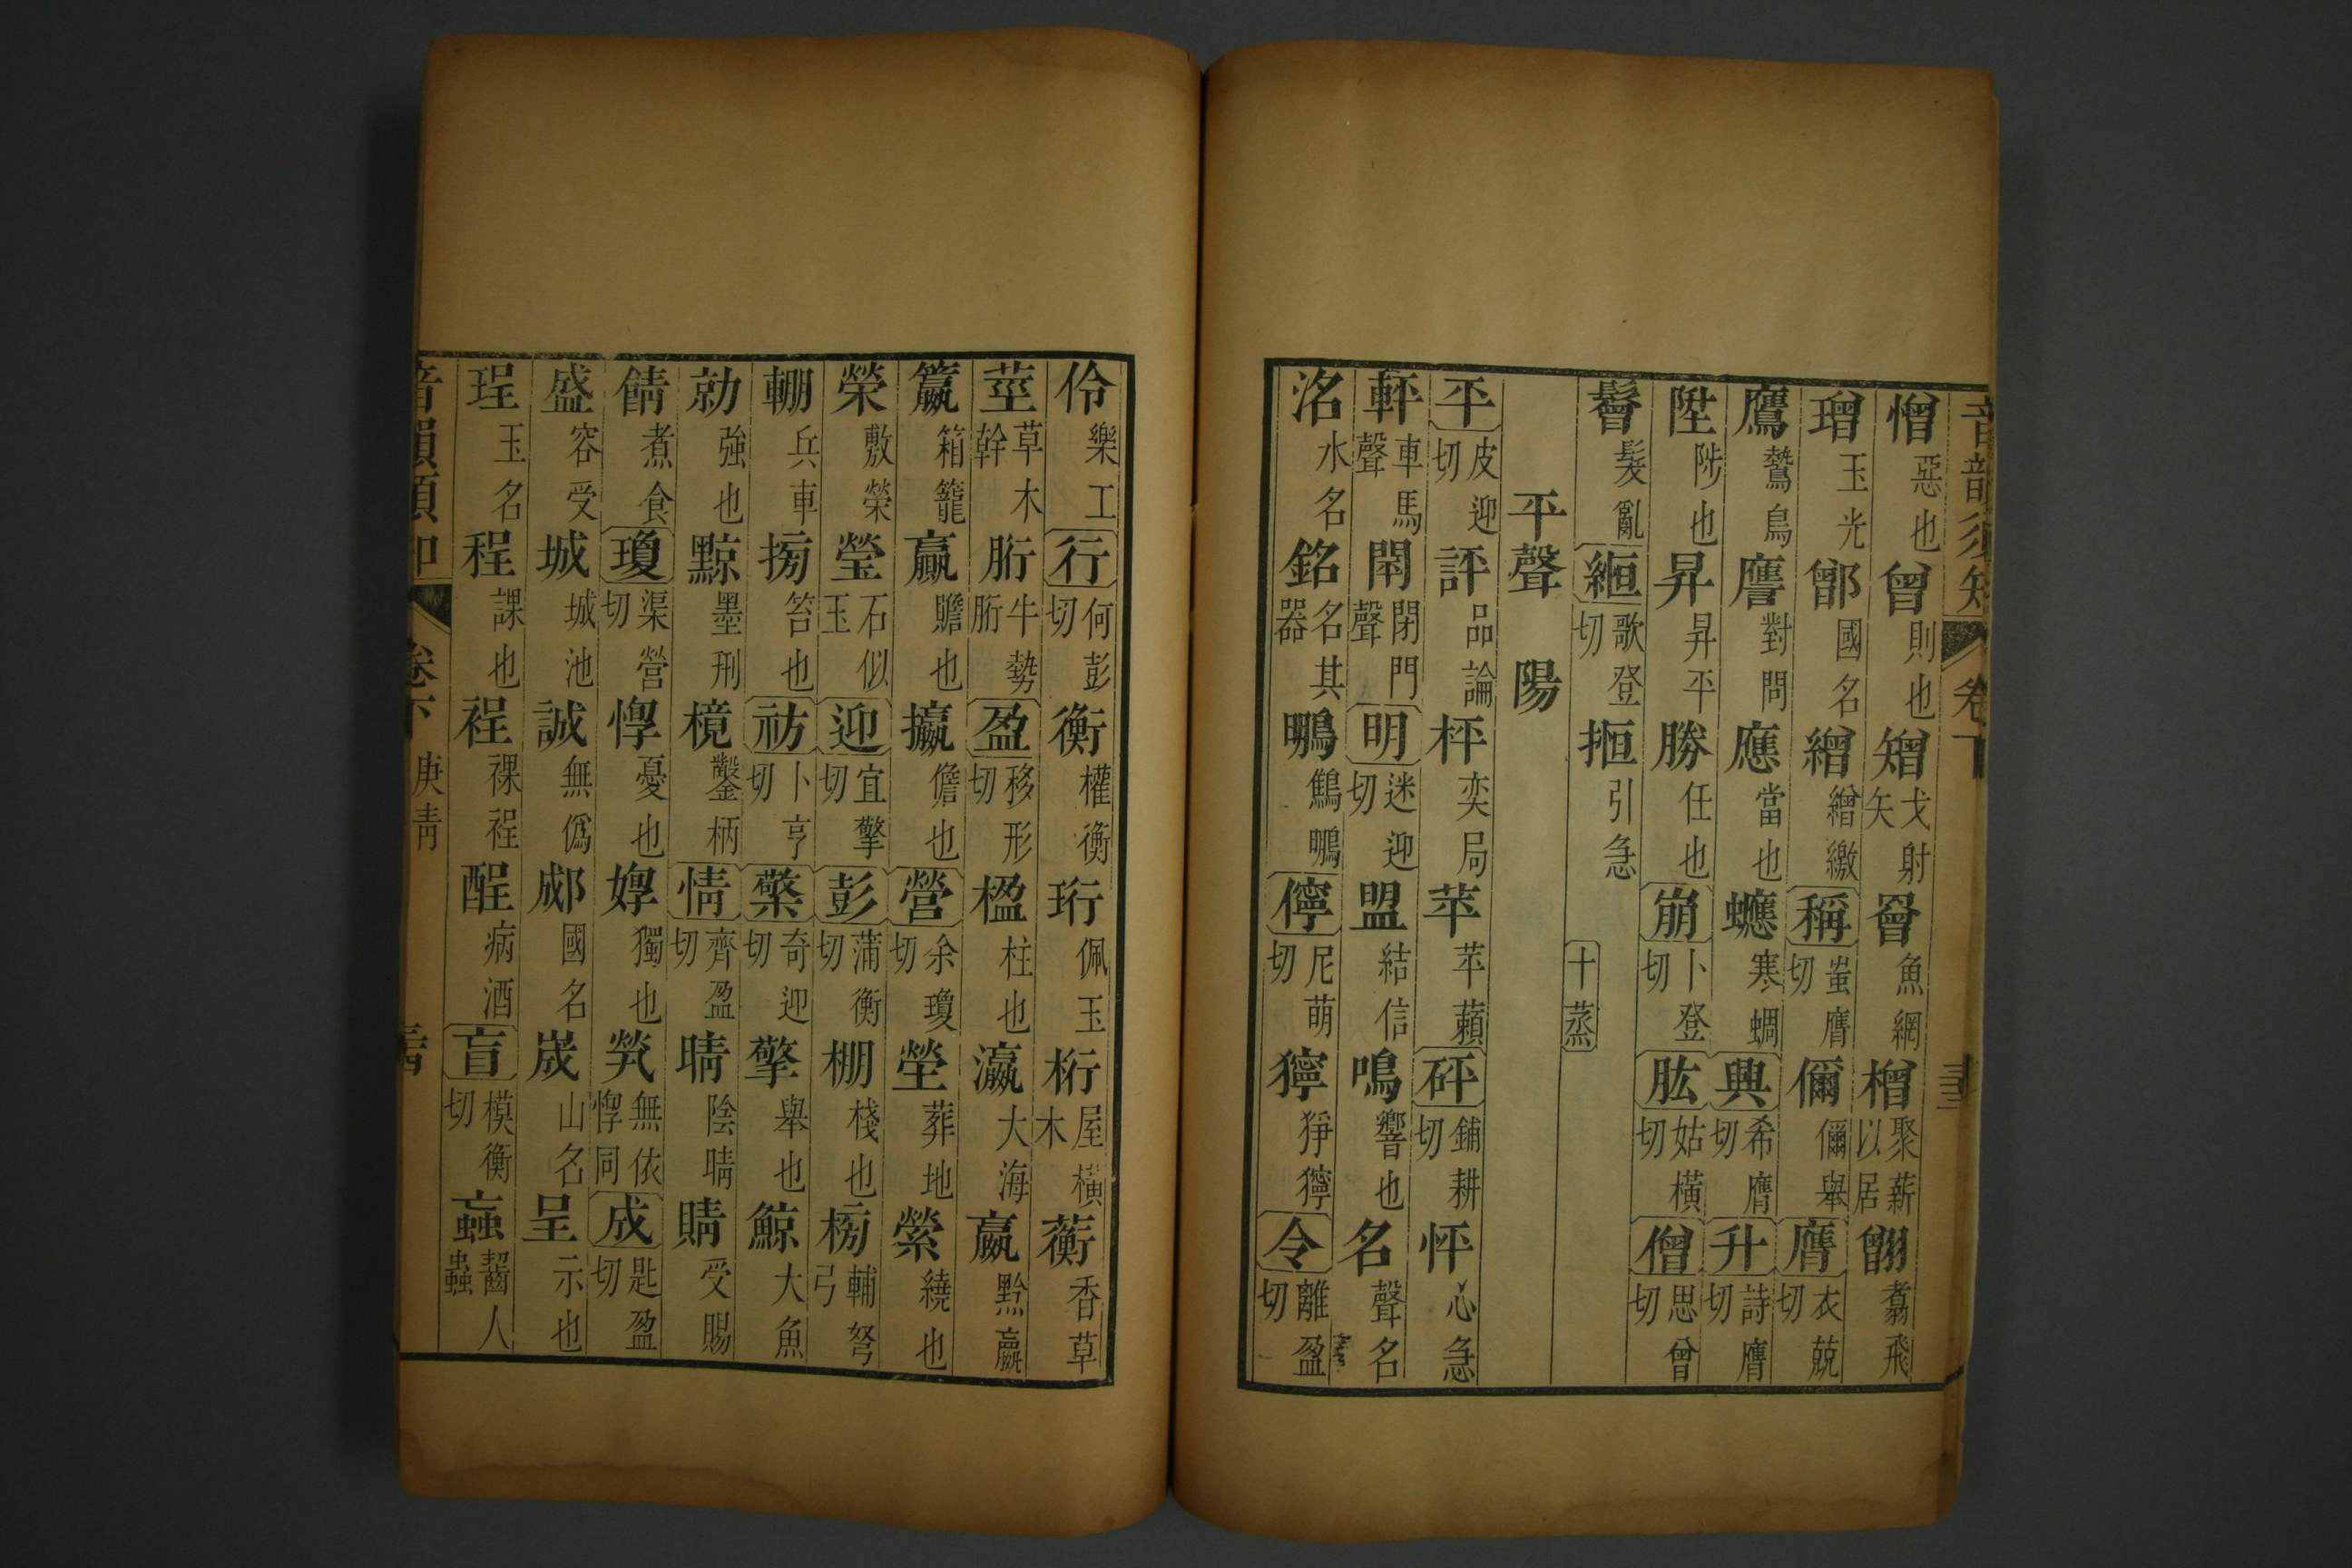 音韻須知 卷下
憎惡也曾則也矰弋射矢罾魚網橧聚薪以居翾翥飛
璔玉光鄫國名繒繒繳稱蚩膺切偁偁舉膺衣兢切
鷹鷙鳥譍對問應當也蠯寒蜩興希膺切升詩膺切
陞陟也昇昇平勝任也崩卜登切肱姑橫切僧思曾切
鬙髮亂縆歌登切揯引急 十蒸
平聲 陽
平皮迎切評品論枰奕局苹苹藾砰鋪耕切怦心急
軯車馬聲閛閉門聲明迷迎切盟結信鳴響也名聲名
洺水名銘名其器鸣鷦鸣儜尼萌切獰猙獰令離盈切
伶樂工行何彭切衡權衡珩佩玉桁屋橫木蘅香草
莖草木幹胻牛勢胻盈移形切楹柱也瀛大海嬴黥嬴
籯箱籠贏贍也攍儋也營余瓊切塋葬地縈繞也
榮敷榮瑩石似玉迎宜擎切彭蒲衡切棚棧也榜輔弩弓
輣兵車搒笞也祊卜亨切檠奇迎切擎舉也鯨大魚
勍強也黥墨刑樈鑿柄情齊盈切晴陰晴賵受賜
餠煮食瓊渠營切惸憂也婷獨也煢無依惸同成匙盈切
盛容受城城池誠無僞郕國名峸山名呈示也
珵玉名程課也裎裸裎酲病酒盲模衡切蝱齧人蟲
音韻須知 卷下 庚青